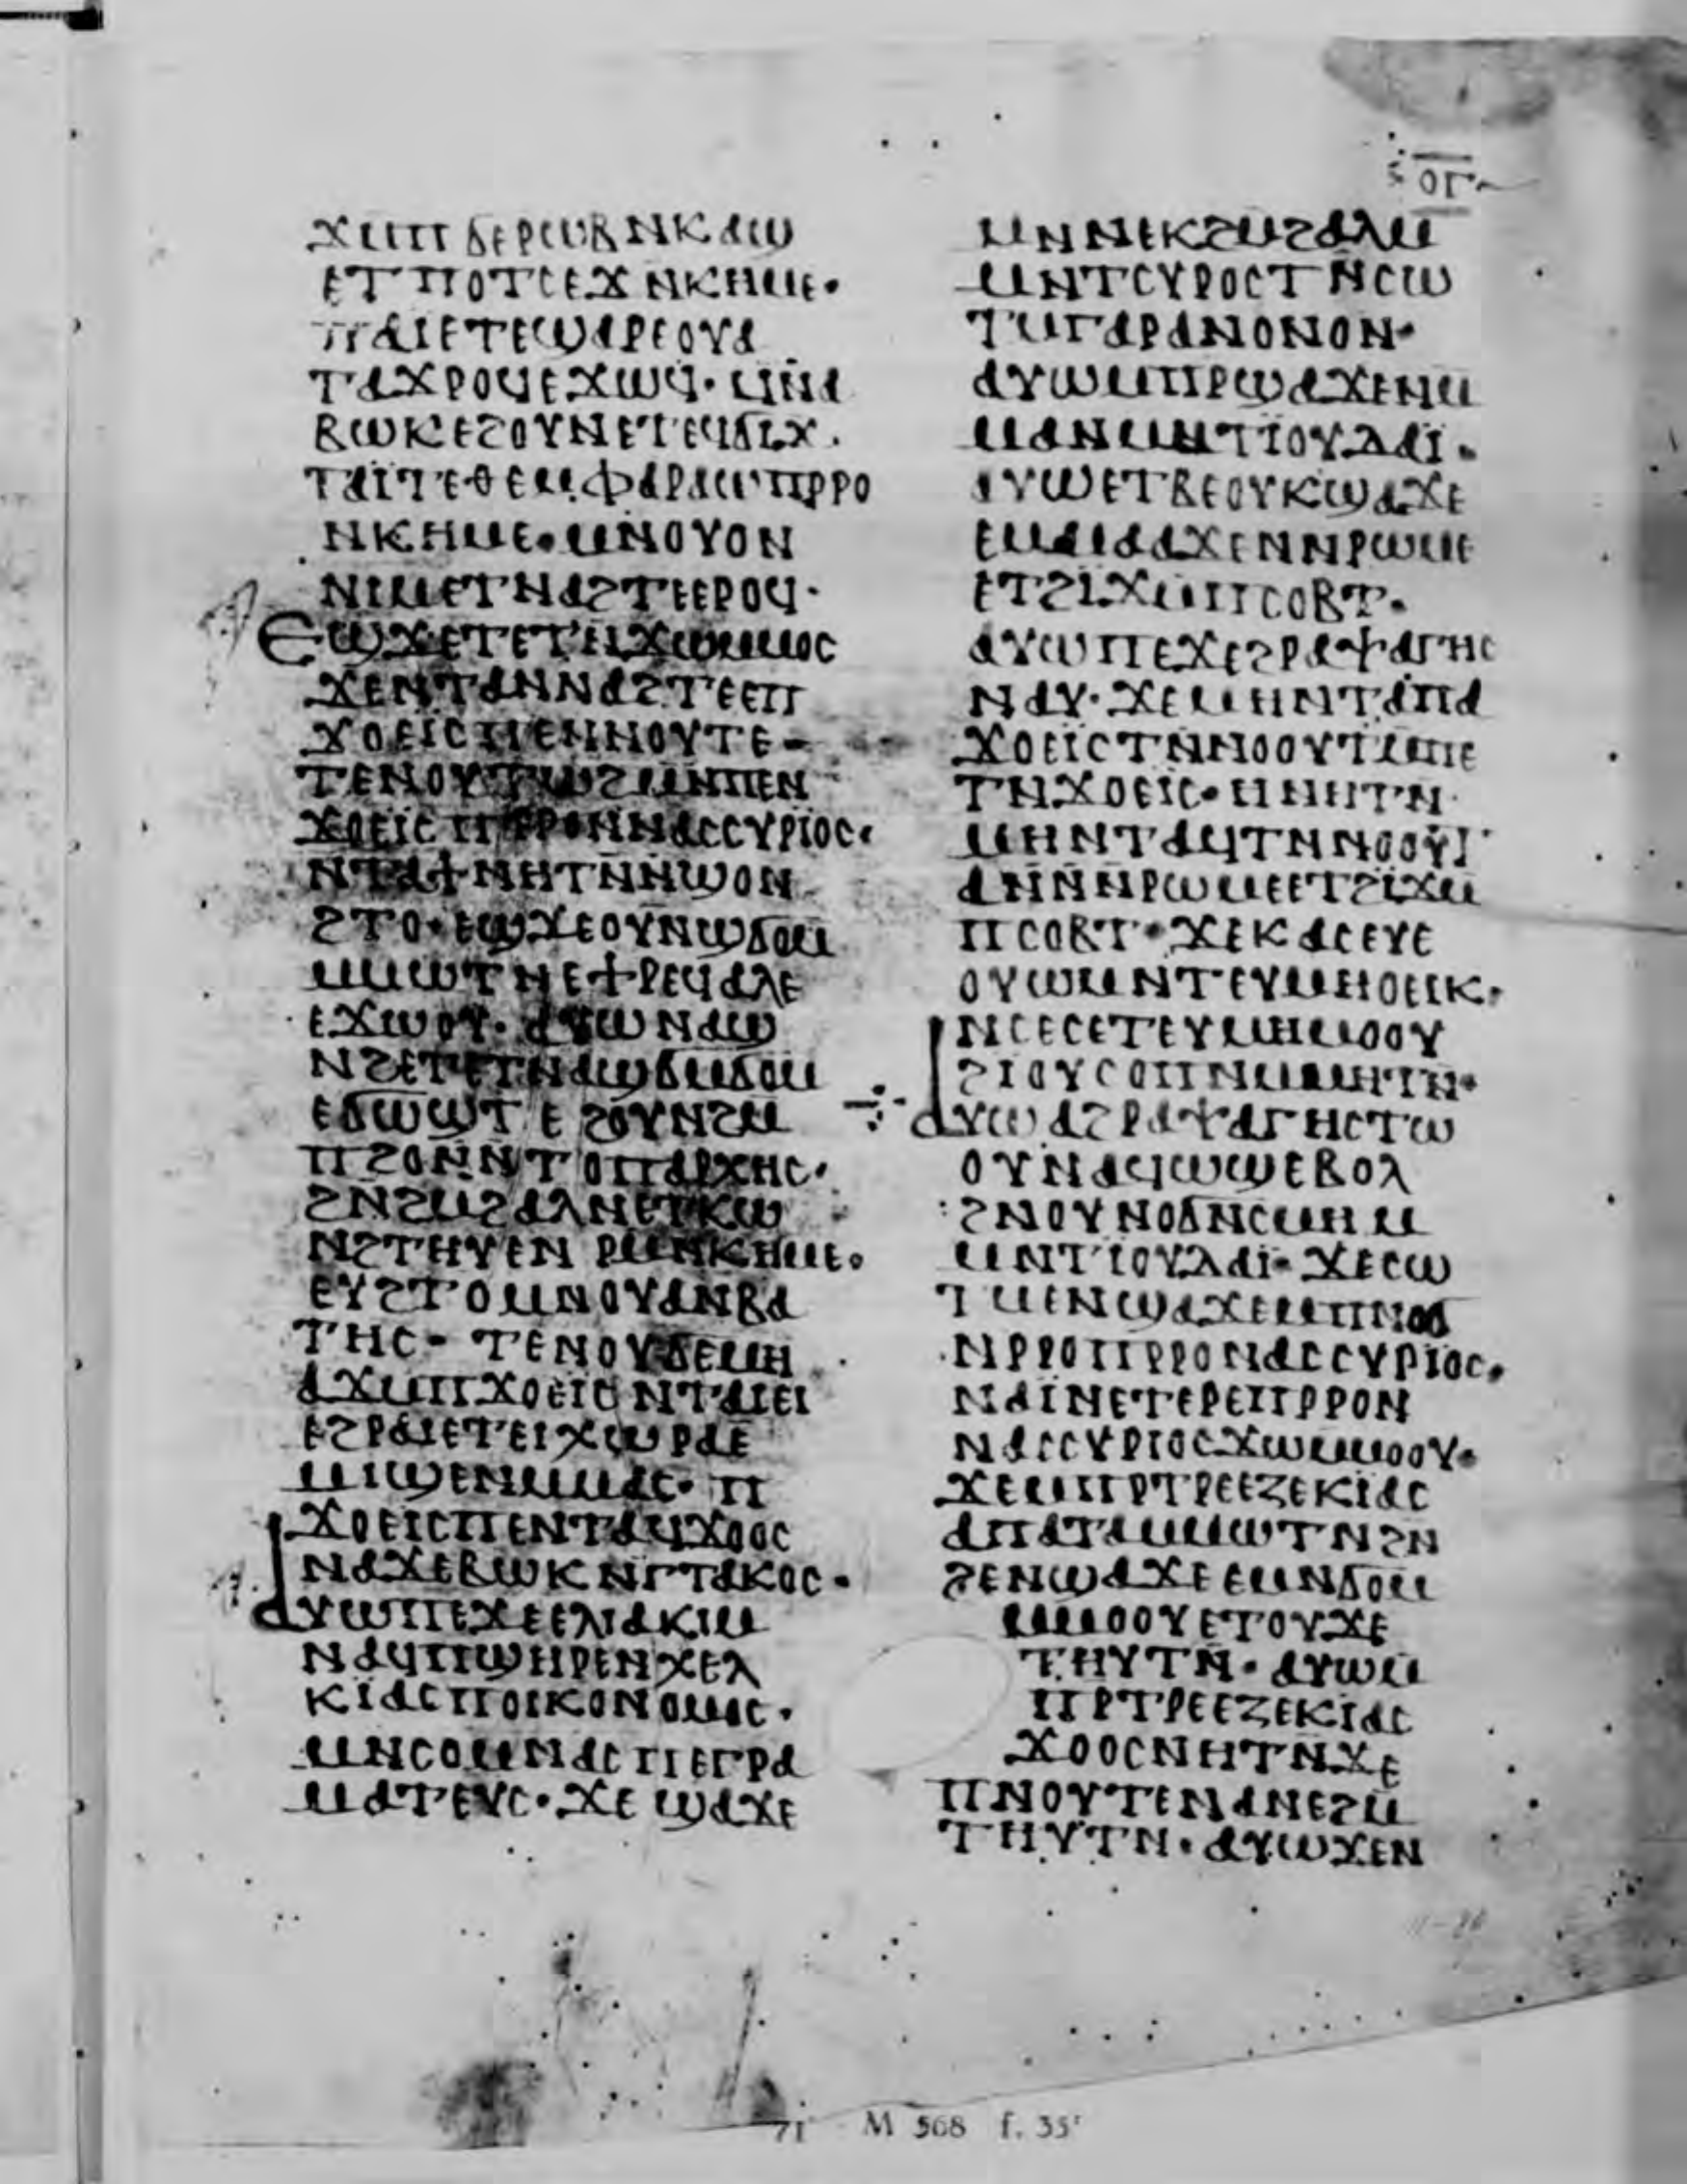 ⲟⲅ
ϫⲙⲡϭⲉⲣⲱⲃⲛⲕⲁϣ
ⲉⲧⲡⲟⲧⲥⲉϫⲛⲕⲏⲙⲉ·
ⲡⲁⲓⲉⲧⲉϣⲁⲣⲉⲟⲩⲁ
ⲧⲁϫⲣⲟϥⲉϫⲱϥ· ⲛϥⲛⲁ
ⲃⲱⲕⲉϩⲟⲩⲛⲉⲧⲉϥϭⲓϫ·
ⲧⲁⲓⲧⲉⲑⲉⲙⲫⲁⲣⲁⲱⲡⲣⲣⲟ
ⲛⲕⲏⲙⲉ·ⲙⲛⲟⲩⲟⲛ
ⲛⲓⲙⲉⲧⲛⲁϩⲧⲉⲉⲣⲟϥ·
ⲉϣϫⲉⲧⲉⲧⲛϫⲱⲙⲙⲟⲥ
ϫⲉⲛⲧⲁⲛⲛⲁϩⲧⲉⲉⲡ
ϫⲟⲉⲓⲥⲡⲉⲛⲛⲟⲩⲧⲉ·
ⲧⲉⲛⲟⲩⲧⲱϩⲙⲛⲡⲉⲛ
ϫⲟⲉⲓⲥⲡⲣⲣⲟⲛⲛⲁⲥⲥⲩⲣⲓⲟⲥ·
ⲛⲧⲁϯⲛⲏⲧⲛⲛϣⲟⲛ
ϩⲧⲟ·ⲉϣϫⲉⲟⲩⲛϣϭⲟⲙ
ⲙⲙⲱⲧⲛⲉϯⲣⲉϥⲁⲗⲉ
ⲉϫⲱⲟⲩ· ⲁⲩⲱⲛⲁϣ
ⲛϩⲉⲧⲉⲧⲛⲁϣϭⲙϭⲟⲙ
ⲉϭⲱϣⲧⲉϩⲟⲩⲛϩⲙ
ⲡϩⲟⲛⲛⲧⲟⲡⲁⲣⲭⲏⲥ·
ϩⲛϩⲙϩⲁⲗⲛⲉⲧⲕⲱ
ⲛϩⲧⲏⲩⲉⲛⲣⲙⲛⲕⲏⲙⲉ·
ⲉⲩϩⲧⲟⲙⲛⲟⲩⲁⲛⲃⲁ
ⲧⲏⲥ· ⲧⲉⲛⲟⲩϭⲉⲙⲏ
ⲁϫⲙⲡϫⲟⲉⲓⲥⲛⲧⲁⲓⲉⲓ
ⲉϩⲣⲁⲓⲉⲧⲉⲓⲭⲱⲣⲁⲉ
ⲙⲓϣⲉⲛⲙⲙⲁⲥ· ⲡ
ϫⲟⲉⲓⲥⲡⲉⲛⲧⲁϥϫⲟⲟⲥ
ⲛⲁϫⲉⲃⲱⲕⲛⲅⲧⲁⲕⲟⲥ·
ⲁⲩⲱⲡⲉϫⲉⲉⲗⲓⲁⲕⲓⲙ
ⲛⲁϥⲡϣⲏⲣⲉⲛⲭⲉⲗ
ⲕⲓⲁⲥⲡⲟⲓⲕⲟⲛⲟⲙⲟⲥ·
ⲙⲛⲥⲟⲙⲛⲁⲥⲡⲉⲅⲣⲁ
ⲙⲁⲧⲉⲩⲥ· ϫⲉϣⲁϫⲉ
ⲙⲛⲛⲉⲕϩⲙϩⲁⲗⲙ
ⲙⲛⲧⲥⲩⲣⲟⲥⲧⲛⲥⲱ
ⲧⲙⲅⲁⲣⲁⲛⲟⲛⲟⲛ·
ⲁⲩⲱⲙⲡⲣϣⲁϫⲉⲛⲙ
ⲙⲁⲛⲙⲙⲛⲧⲓⲟⲩⲇⲁⲓ·
ⲁⲩⲱⲉⲧⲃⲉⲟⲩⲕϣⲁϫⲉ
ⲉⲙⲙⲁⲁϫⲉⲛⲛⲣⲱⲙⲉ
ⲉⲧϩⲓϫⲙⲡⲥⲟⲃⲧ·
ⲁⲩⲱⲡⲉϫⲉϩⲣⲁⲯⲁⲅⲏⲥ
ⲛⲁⲩ· ϫⲉⲙⲏⲛⲧⲁⲡⲁ
ϫⲟⲉⲓⲥⲧⲛⲛⲟⲟⲩⲧϣⲁⲡⲉ
ⲧⲛϫⲟⲉⲓⲥ·ⲏⲛⲏⲧⲛ·
ⲙⲏⲛⲧⲁϥⲧⲛⲛⲟⲟⲩⲧ
ⲁⲛⲛⲛⲣⲱⲙⲉⲉⲧϩⲓϫⲙ
ⲡⲥⲟⲃⲧ· ϫⲉⲕⲁⲥⲉⲩⲉ
ⲟⲩⲱⲙⲛⲧⲉⲩⲙⲏⲟⲉⲓⲕ·
ⲛⲥⲉⲥⲉⲧⲉⲩⲙⲏⲙⲟⲟⲩ
ϩⲓⲟⲩⲥⲟⲡⲛⲙⲙⲏⲧⲛ·
ⲁⲩⲱⲁϩⲣⲁⲯⲁⲅⲏⲥⲧⲱ
ⲟⲩⲛⲁϥⲱϣⲉⲃⲟⲗ
ϩⲛⲟⲩⲛⲟϭⲛⲥⲙⲏⲙ
ⲙⲛⲧⲓⲟⲩⲇⲁⲓ· ϫⲉⲥⲱ
ⲧⲙⲉⲛϣⲁϫⲉⲙⲡⲛⲟϭ
ⲛⲣⲣⲟⲡⲣⲣⲟⲛⲁⲥⲥⲩⲣⲓⲟⲥ·
ⲛⲁⲓⲛⲉⲧⲉⲣⲉⲡⲣⲣⲟⲛ
ⲛⲁⲥⲥⲩⲣⲓⲟⲥϫⲱⲙⲙⲟⲟⲩ·
ϫⲉⲙⲡⲣⲧⲣⲉⲉⲍⲉⲕⲓⲁⲥ
ⲁⲡⲁⲧⲁⲙⲙⲱⲧⲛϩⲛ
ϩⲉⲛϣⲁϫⲉⲉⲙⲛϭⲟⲙ
ⲙⲙⲟⲟⲩⲉⲧⲟⲩϫⲉ
ⲧⲏⲩⲧⲛ· ⲁⲩⲱⲙ
ⲡⲣⲧⲣⲉⲉⲍⲉⲕⲓⲁⲥ
ϫⲟⲟⲥⲛⲏⲧⲛϫⲉ
ⲡⲛⲟⲩⲧⲉⲛⲁⲛⲉϩⲙ
ⲧⲏⲩⲧⲛ· ⲁⲩⲱϫⲉⲛ
71 M 568 f. 35ʳ